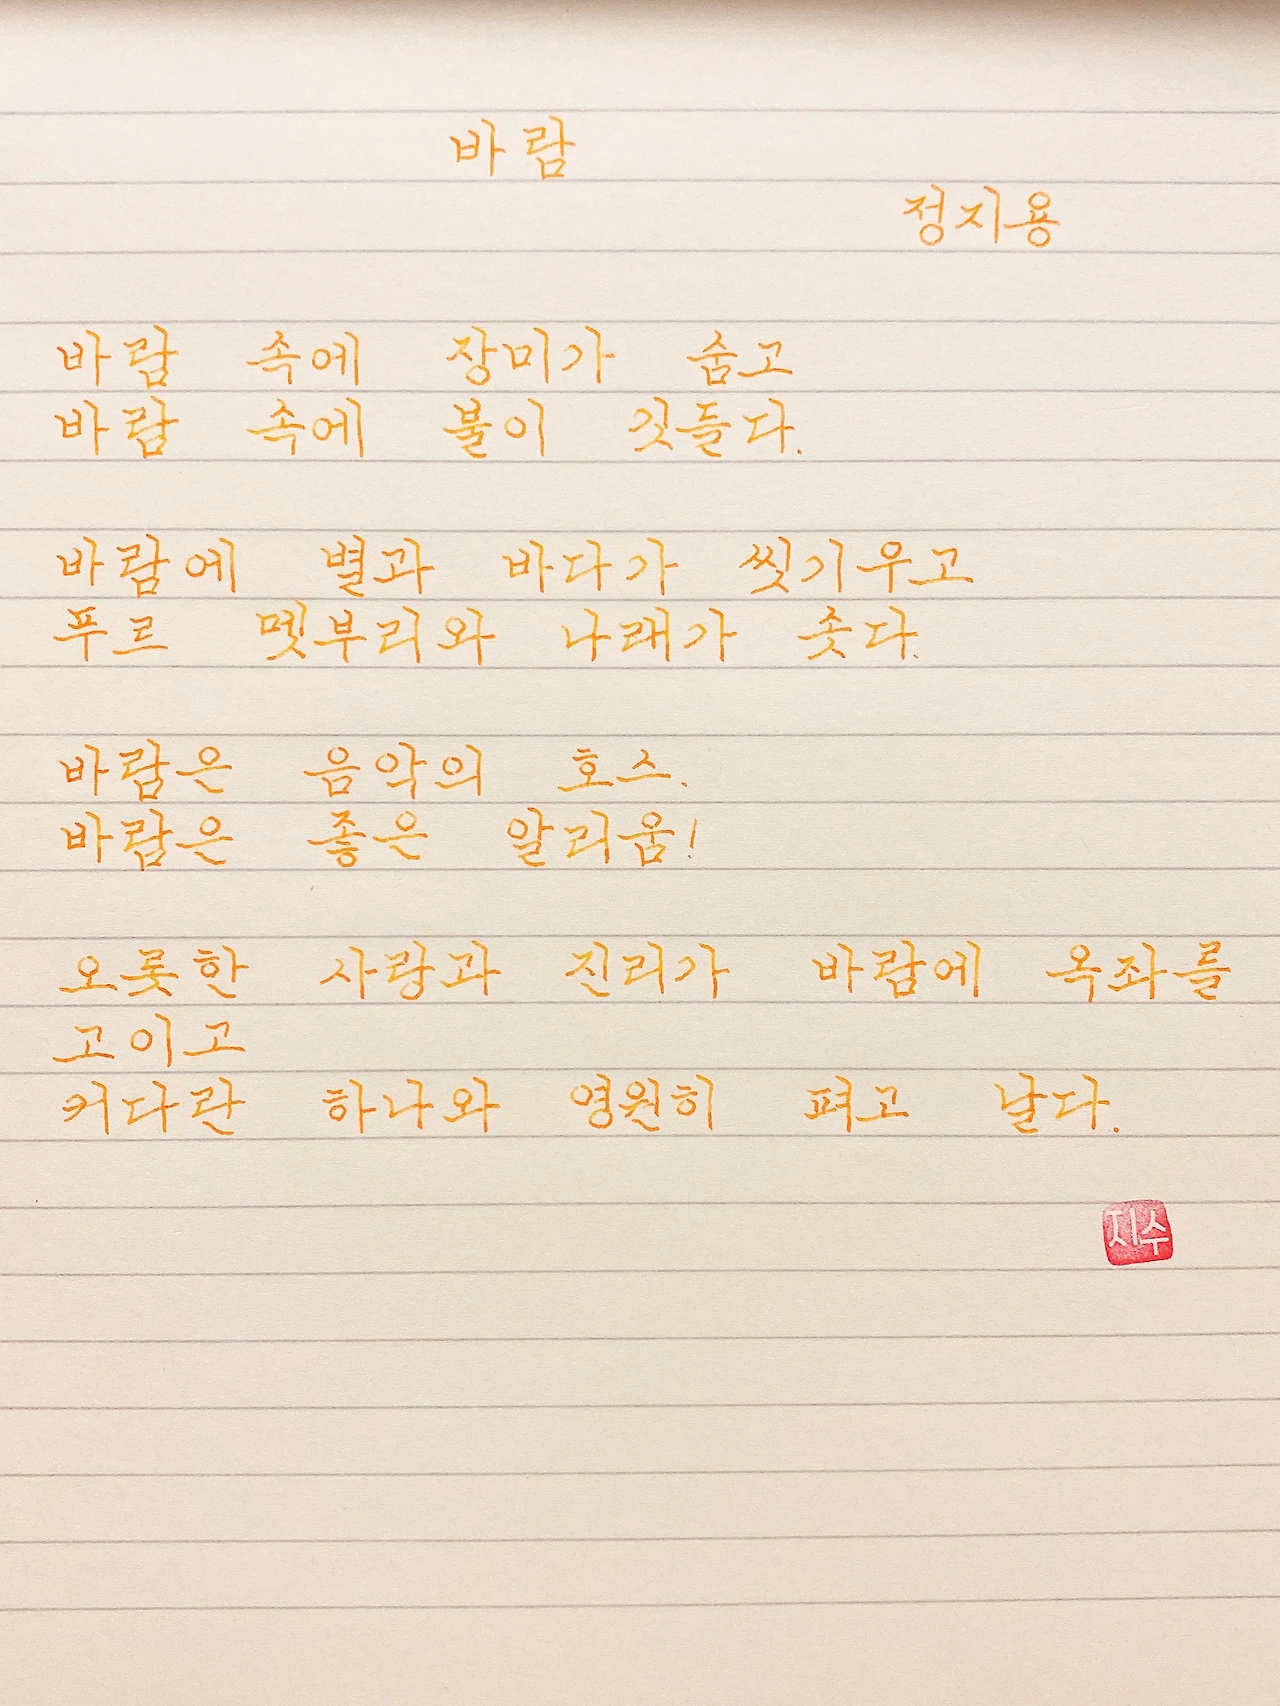 바람
정지용
바람 속에 장미가 숨고
바람 속에 불이 깃들다.
바람에 별과 바다가 씻기우고
푸르 멧부리와 나래가 솟다.
바람은 음악의 호수.
바람은 좋은 알리움!
오롯한 사랑과 진리가 바람에 옥좌를
고이고
커다란 하나와 영원히 펴고 날다.
지수